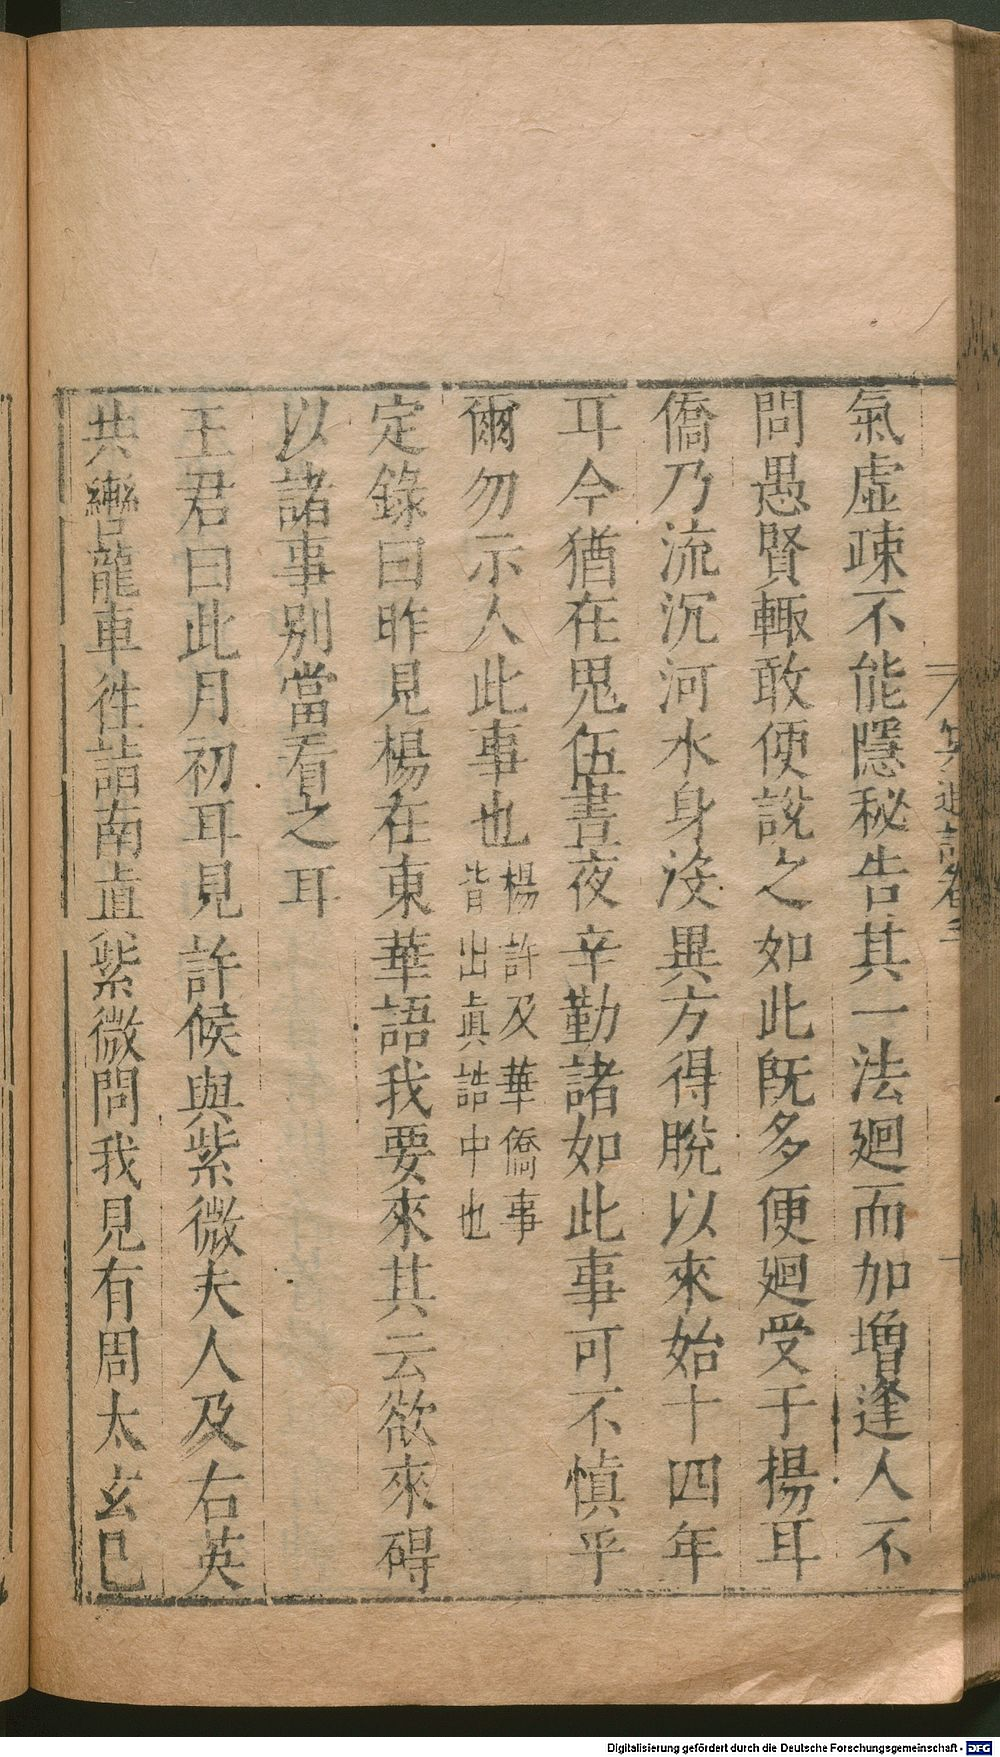 氣虛疎不能隱秘告其一法廻而加增逢人不
問愚賢輙敢便說之如此旣多便廻受于揚耳
僑乃流沉河水身沒異方得脫以來始十四年
耳今猶在鬼伍晝夜辛勤諸如此事可不慎乎
爾勿示人此事也楊許及華僑事
皆出真誥中也
定錄曰昨見楊在東華語我要來其云欲來碍
以諸事別當看之耳
王君曰此月初耳見許候與紫微夫人及右英
共轡龍車徃詣南眞紫微問我見有周太玄巳
Digitalisierung gefördert durch die Deutsche Forschungsgemeinschaft - DFG